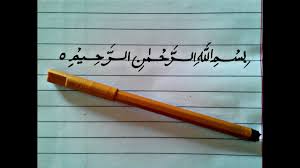 بِسْمِ اللّٰهِ الرَّحْمٰنِ الرَّحِيْمِ ٥